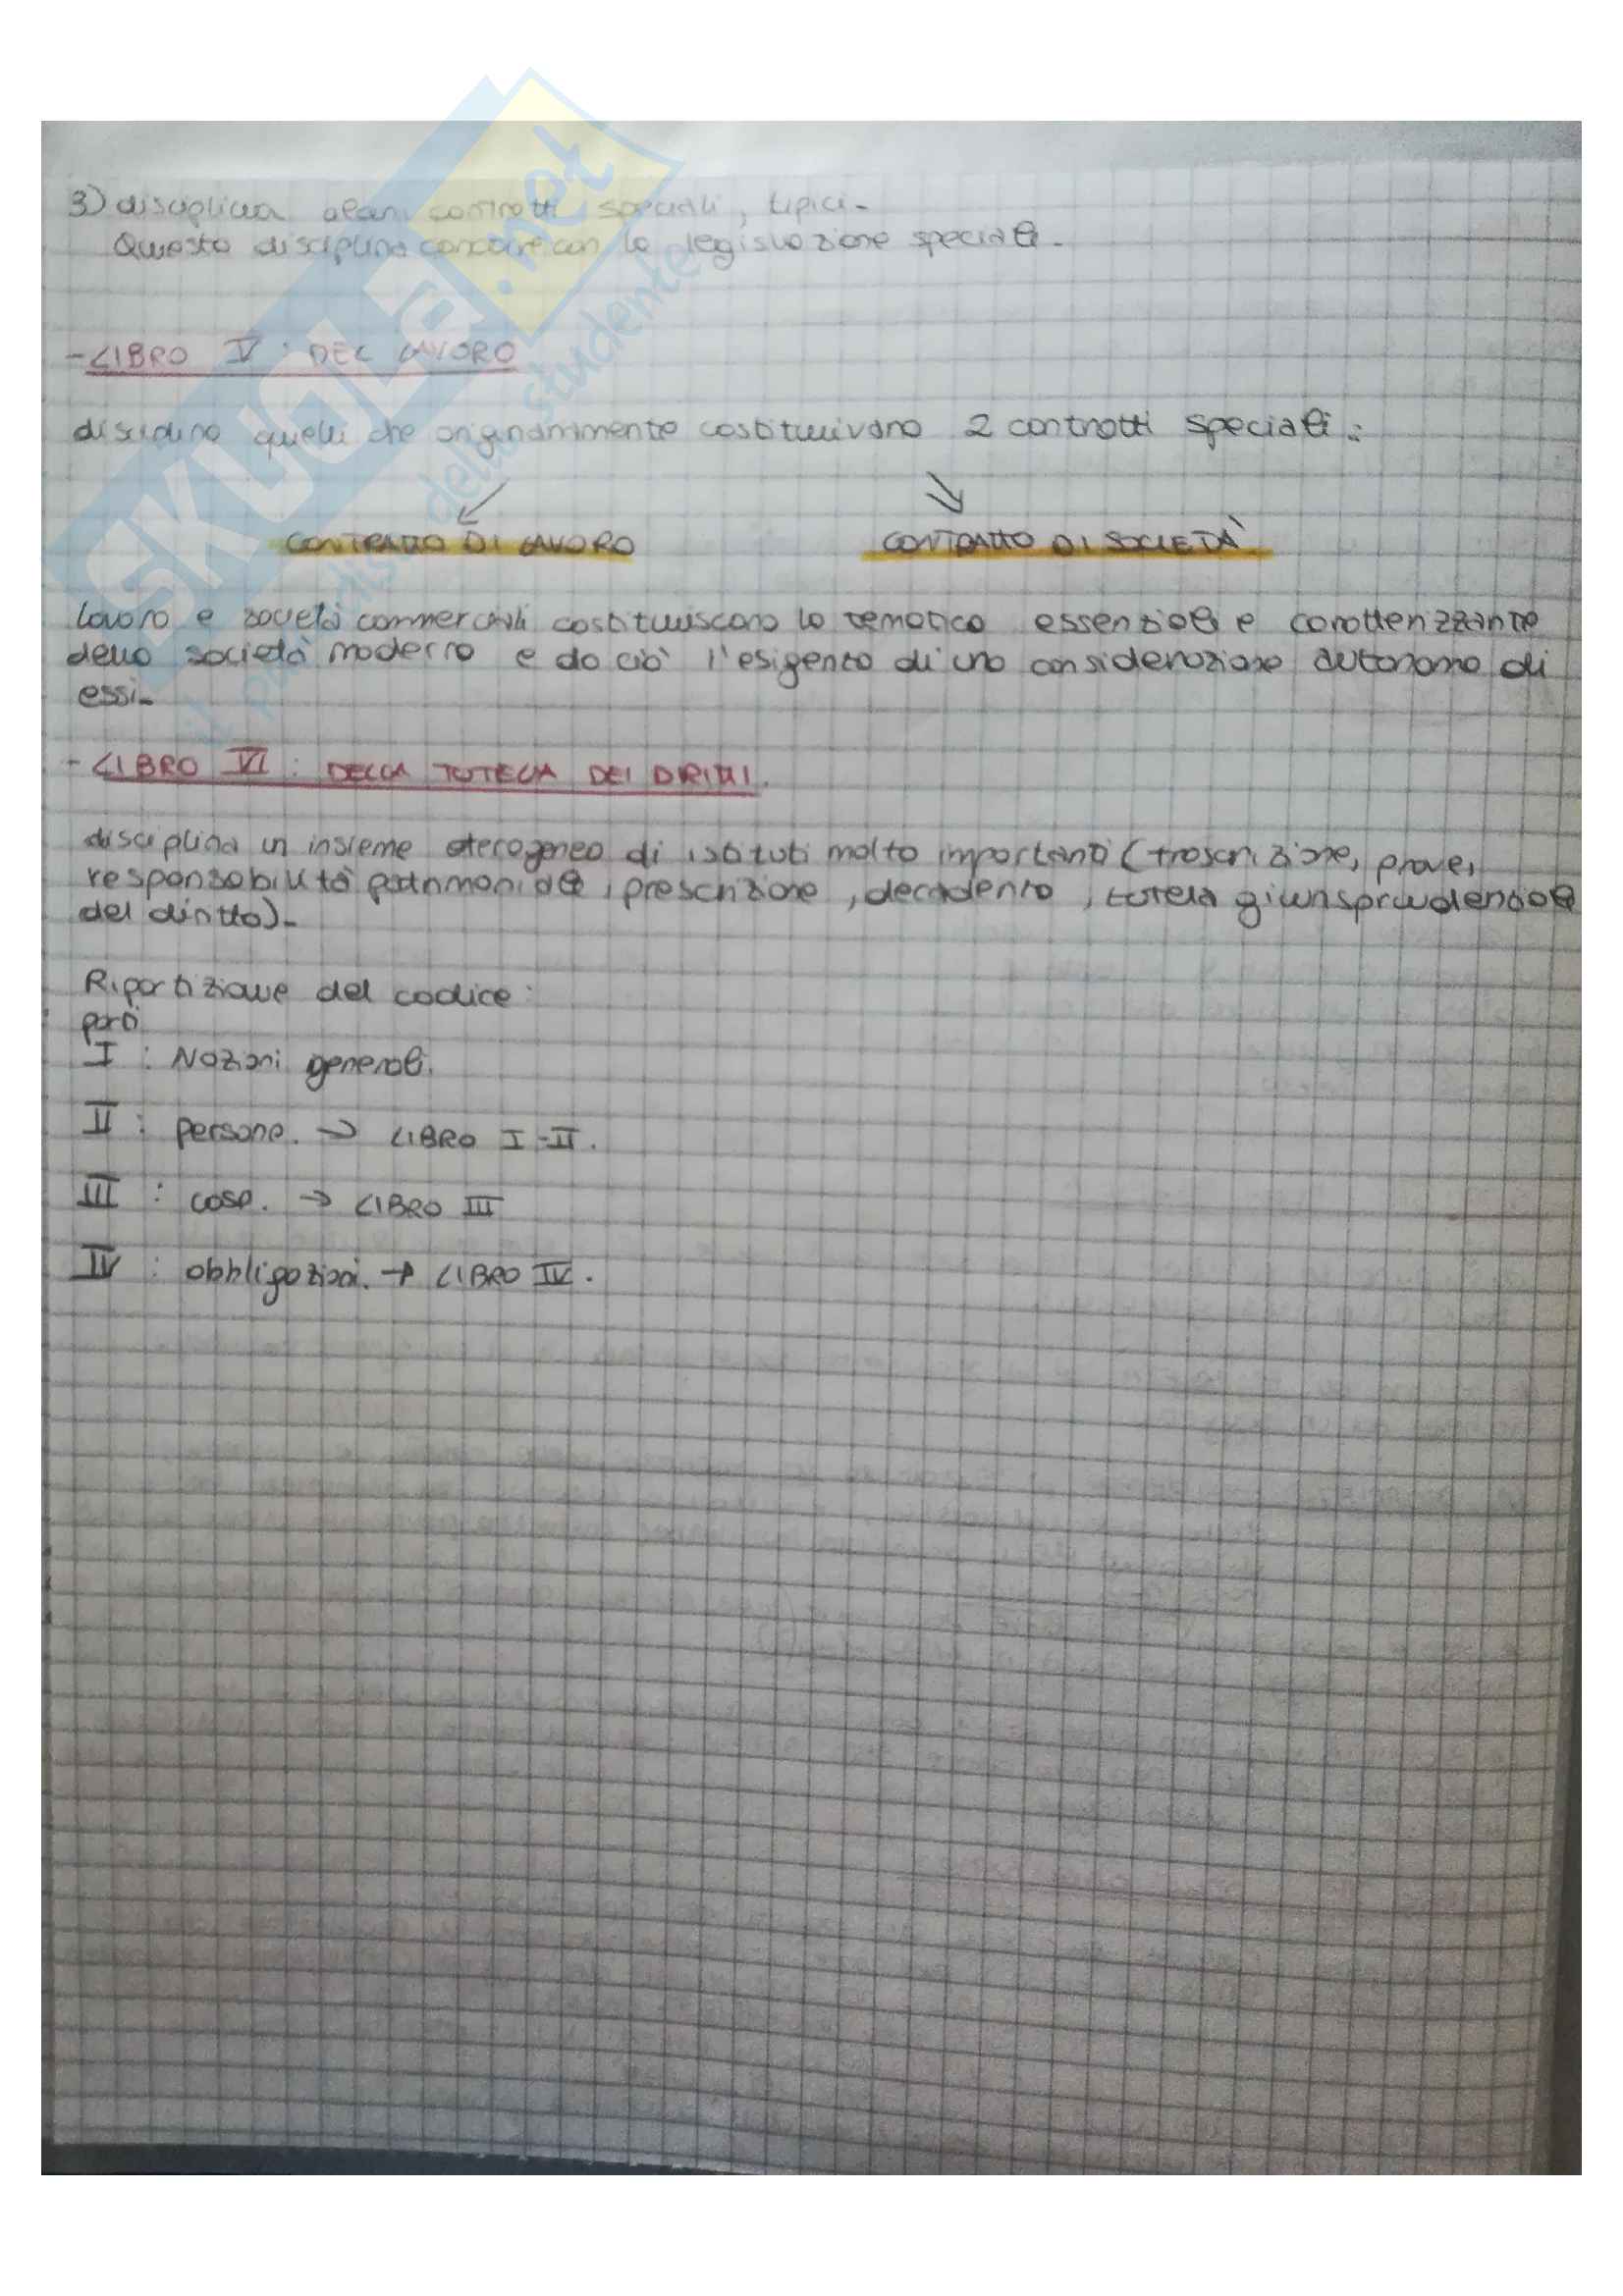 3) disciplina alcuni contratti speciali, tipici.
Questa disciplina concorre con la legislazione speciale.
- LIBRO V : DEL LAVORO
disciplina quelli che originariamente costituivano 2 contratti speciali :
CONTRATTO DI LAVORO CONTRATTO DI SOCIETÀ
lavoro e società commerciali costituiscono la tematica essenziale e caratterizzante
della società moderna e da ciò l'esigenza di una considerazione autonoma di
essi.
- LIBRO VI : DELLA TUTELA DEI DIRITTI.
disciplina un insieme eterogeneo di istituti molto importanti (trascrizione, prove,
responsabilità patrimoniale, prescrizione, decadenza, tutela giurisprudenziale
del diritto).
Ripartizione del codice :
parti
I : Nozioni generali.
II : persone. → LIBRO I-II.
III : cose. → LIBRO III
IV : obbligazioni. → LIBRO IV.
SKUOLA.net
il paradiso dello studente